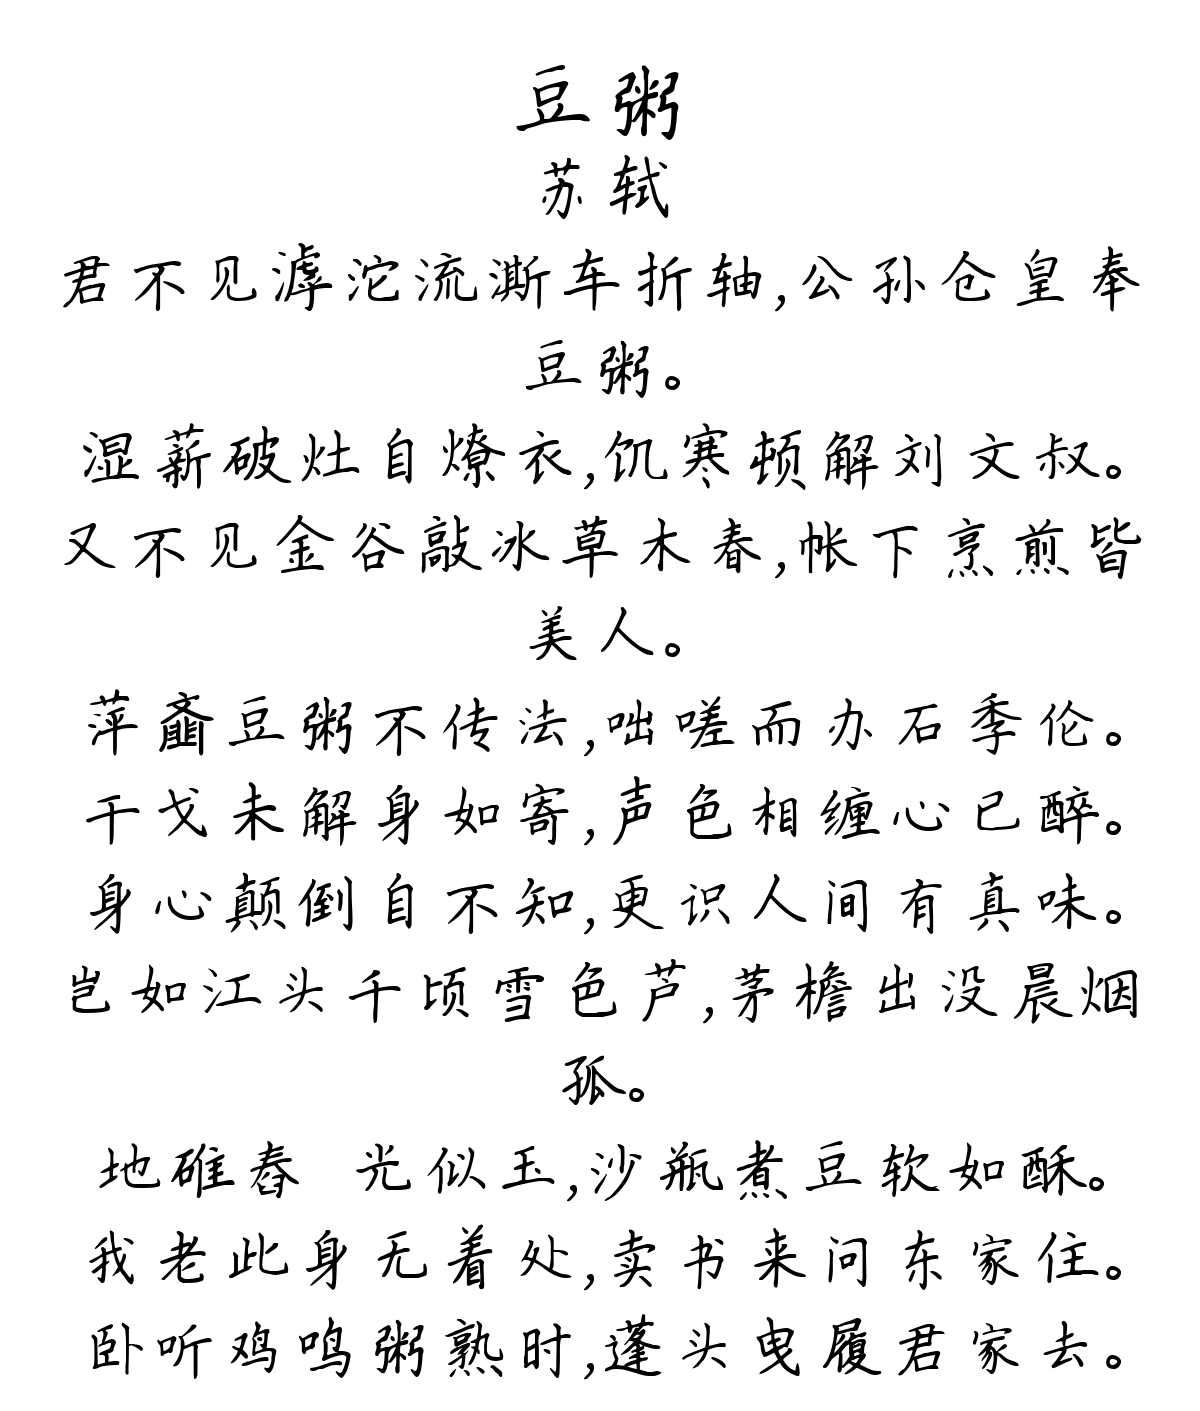 豆粥
苏轼
君不见滹沱流澌车折轴,公孙仓皇奉
豆粥。
湿薪破灶自燎衣,饥寒顿解刘文叔。
又不见金谷敲冰草木春,帐下烹煎皆
美人。
萍齑豆粥不传法,咄嗟而办石季伦。
干戈未解身如寄,声色相缠心已醉。
身心颠倒自不知,更识人间有真味。
岂如江头千顷雪色芦,茅檐出没晨烟
孤。
地碓舂 光似玉,沙瓶煮豆软如酥。
我老此身无着处,卖书来问东家住。
卧听鸡鸣粥熟时,蓬头曳履君家去。